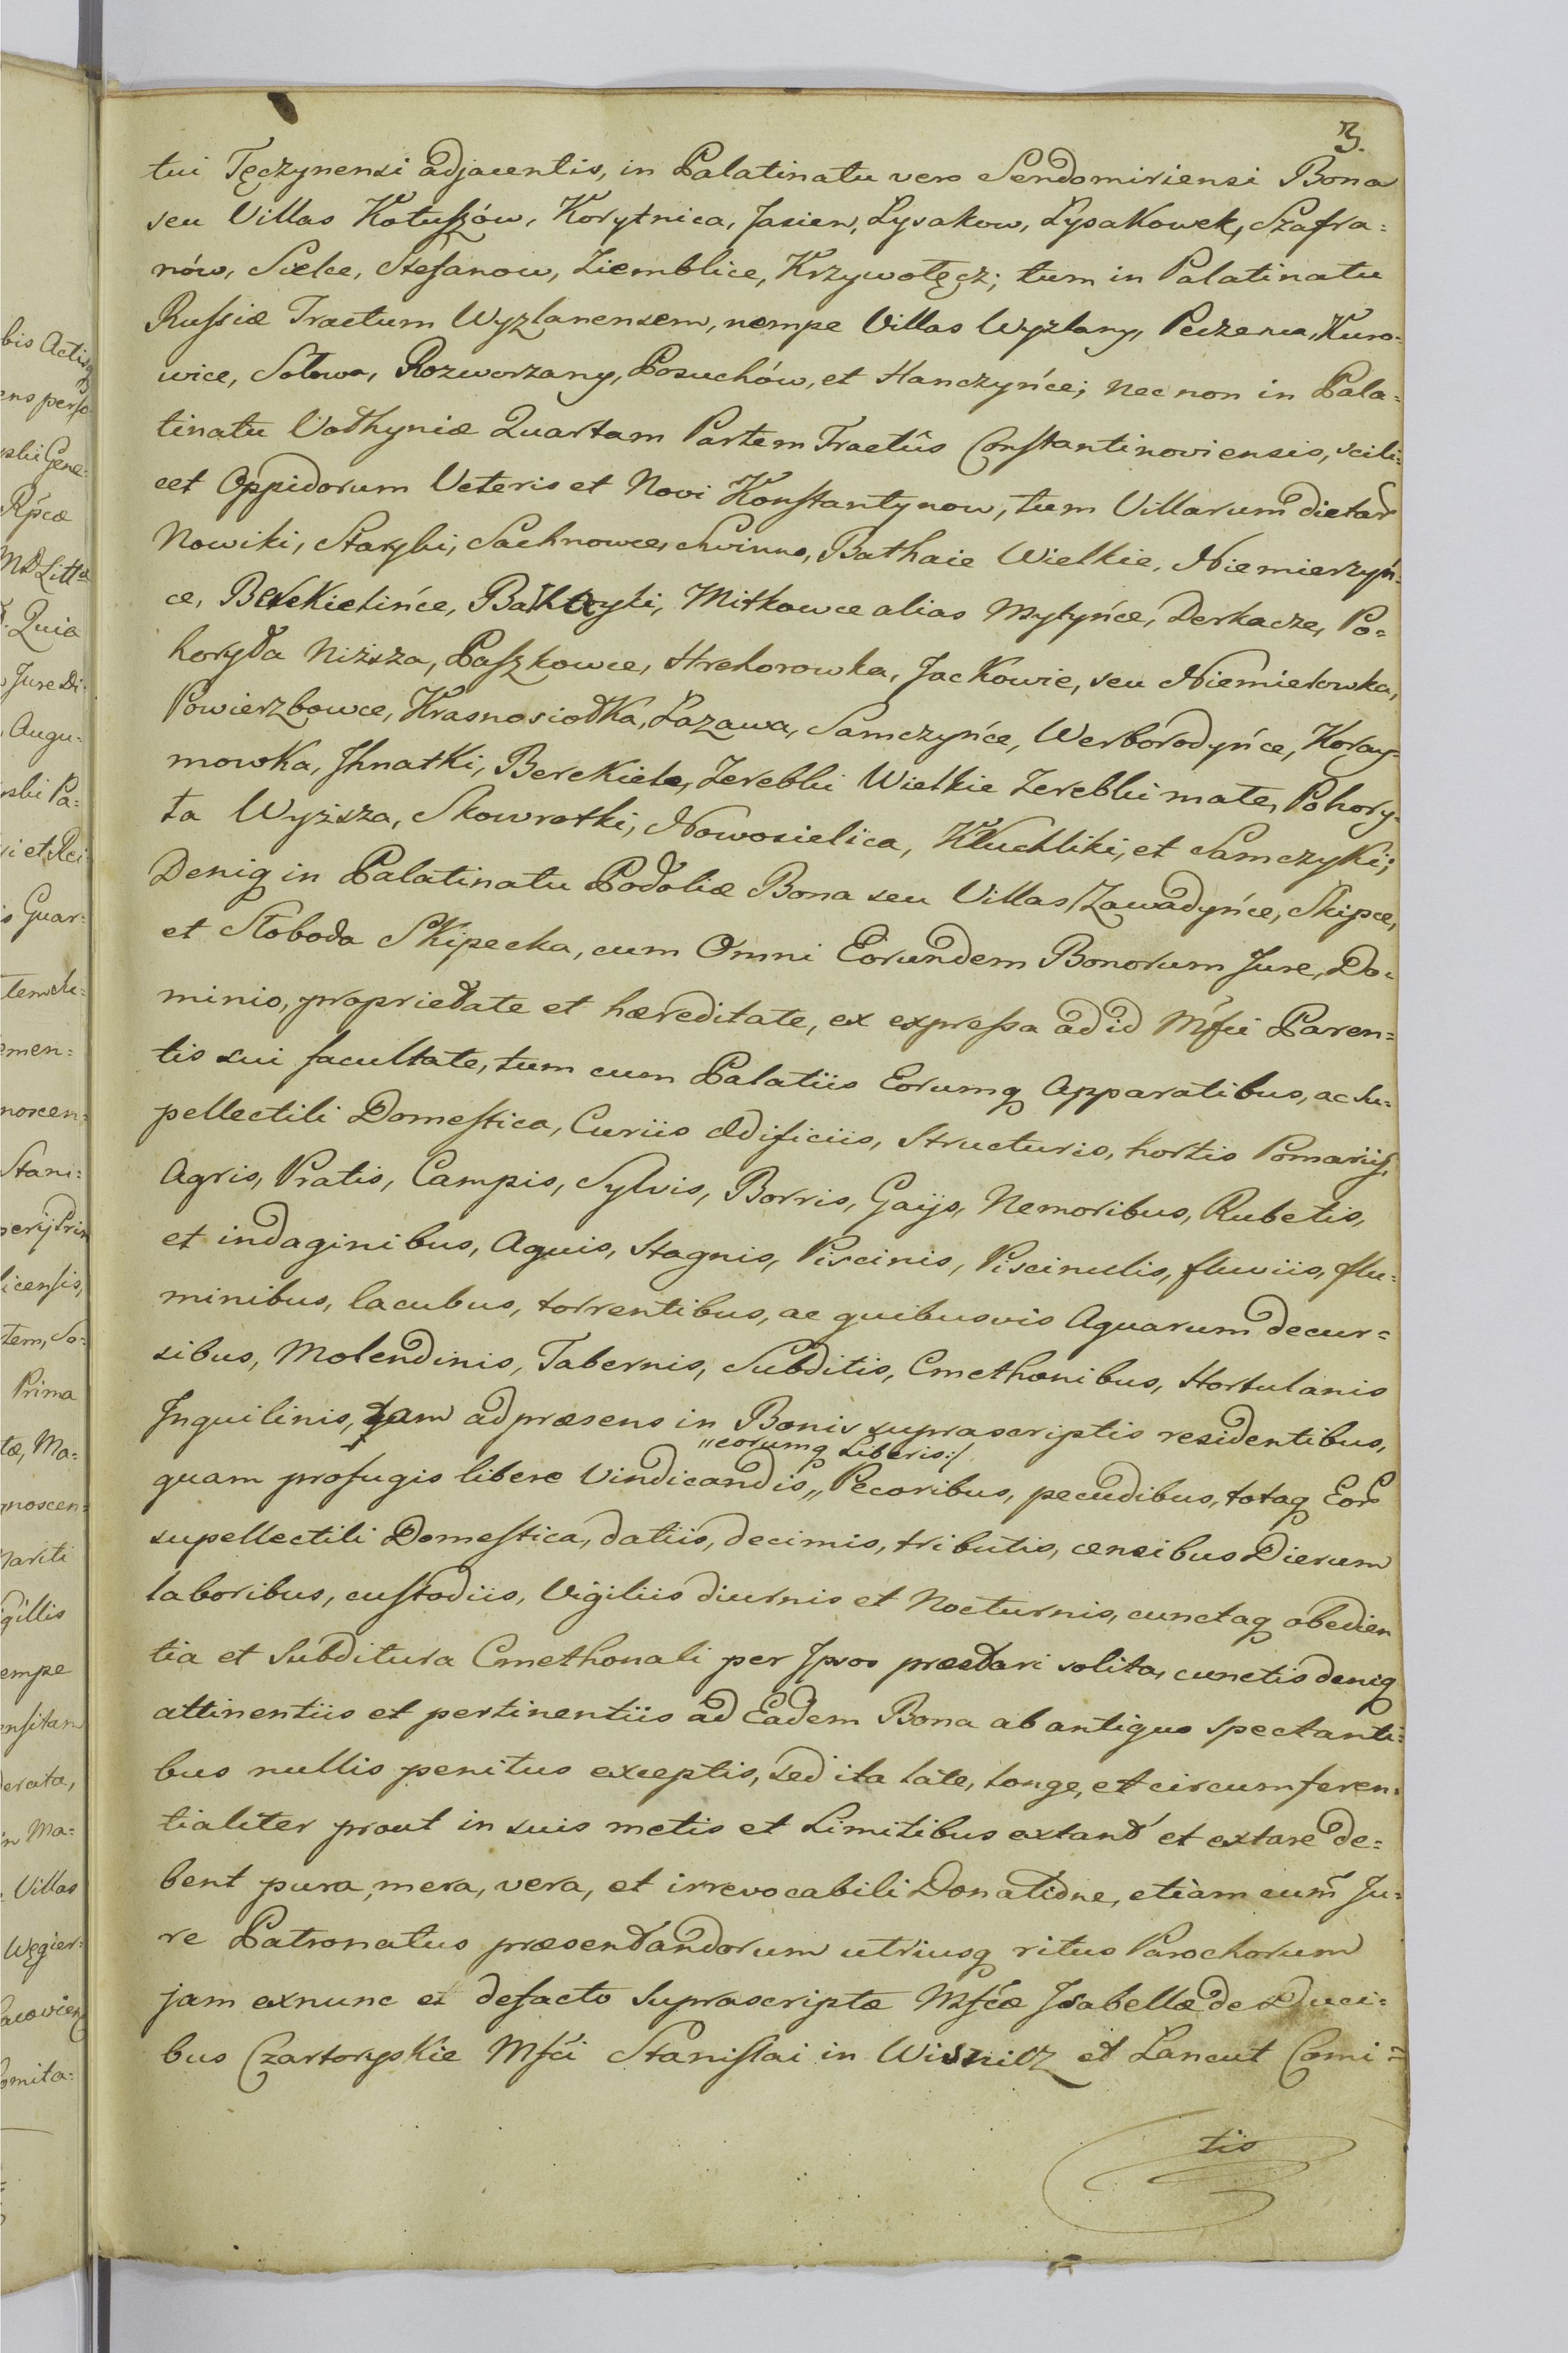 3.
tui Tęczynensi adjacentis, in Palatinatu vero Sendomiriensi Bona
seu Villas Kotuszów, Korytnica, Jasien, Lysakow, Łysakowek, Szafra=
nów, Sielce, Stefanow, Ziemblice, Krzywotęcz; tum in Palatinatu
Russiæ Tractum Wyzlanensem, nempe Villas Wyzlany, Peczenia, Kuro=
wice, Solowa, Rozworzany, Posuchów, et Hanczyńce; nec non in Pala=
tinatu Volhyniæ Quartam Partem Tractûs Constantinoviensis, scili=
cet Oppidorum Veteris et Novi Konstantynow, tum Villarum dictar
Nowiki, Staryki, Sachnowce, Swinna, Bathaie Wielkie, Niemierzyń=
ce, Berekielińce, Mitkowce alias Mytyńce, Derkacze, Po=
horyła Niższa, Paszkowce, Hrehorowka, Jackowie, seu Niemirowka,
Powierzbowce, Krasnosiołka, Łazawa, Samczyńce, Werborodyńce, Koray=
mowka, Jhnatki, Berekiele, Zerebki Wielkie Zerebki małe, Pohory=
ła Wyższa, Skowrotki, Nowosielica, Kluchliki, et Samczyki;
Deniq in Palatinatu Podoliæ Bona seu Villas Zawadyńce, Skipce,
et Słoboda Skipecka, cum Omni Eorundem Bonorum Jure, Do=
minio, proprietate et hæreditate, ex expressa ad id Mfci Paren=
tis sui facultate, tum cum Palatiis Eorumq Apparatibus, ac Su=
pellectili Domestica, Curiis Ædificiis, Structuris, hortis Pomariis,
Agris, Pratis, Campis, Sylvis, Borris, Gaijs, Nemoribus, Rubetis,
et indaginibus, Aquis, Stagnis, Piscinis, Piscinulis, fluviis, flu=
minibus, lacubus, torrentibus, ac quibusvis Aquarum decur=
sibus, Molendinis, Tabernis, Subditis, Cmethonibus, Hortulanis
Inquilinis, tam ad præsens in Bonis suprascriptis residentibus,
"eorumq Liberis:/
quam profugis libere Vindicandis,, Pecoribus, pecudibus, totaq Eor
supellectili Domestica, datiis, decimis, tributis, censibus Dierum
laboribus, custodiis, Vigiliis diurnis et Nocturnis, cunctaq obedien
tia et Subditura Cmethonali per Ipsos præstari solita, cunctis deniq
attinentiis et pertinentiis ad Eadem Bona ab antiquo spectanti=
bus nullis penitus exceptis, sed ita late, longe, et circumferen=
tialiter prout in suis metis et Limitibus extant et extare de=
bent pura, mera, vera, et irrevocabili Donatione, etiam cum Ju=
re Patronatus præsentandorum utriusq ritus Parochorum
jam exnunc et defacto Suprascriptæ Mfcæ Isabellæ de Duci=
bus Czartoryskie Mfci Stanislai in Wisnicz et Lancut Comi=
tis